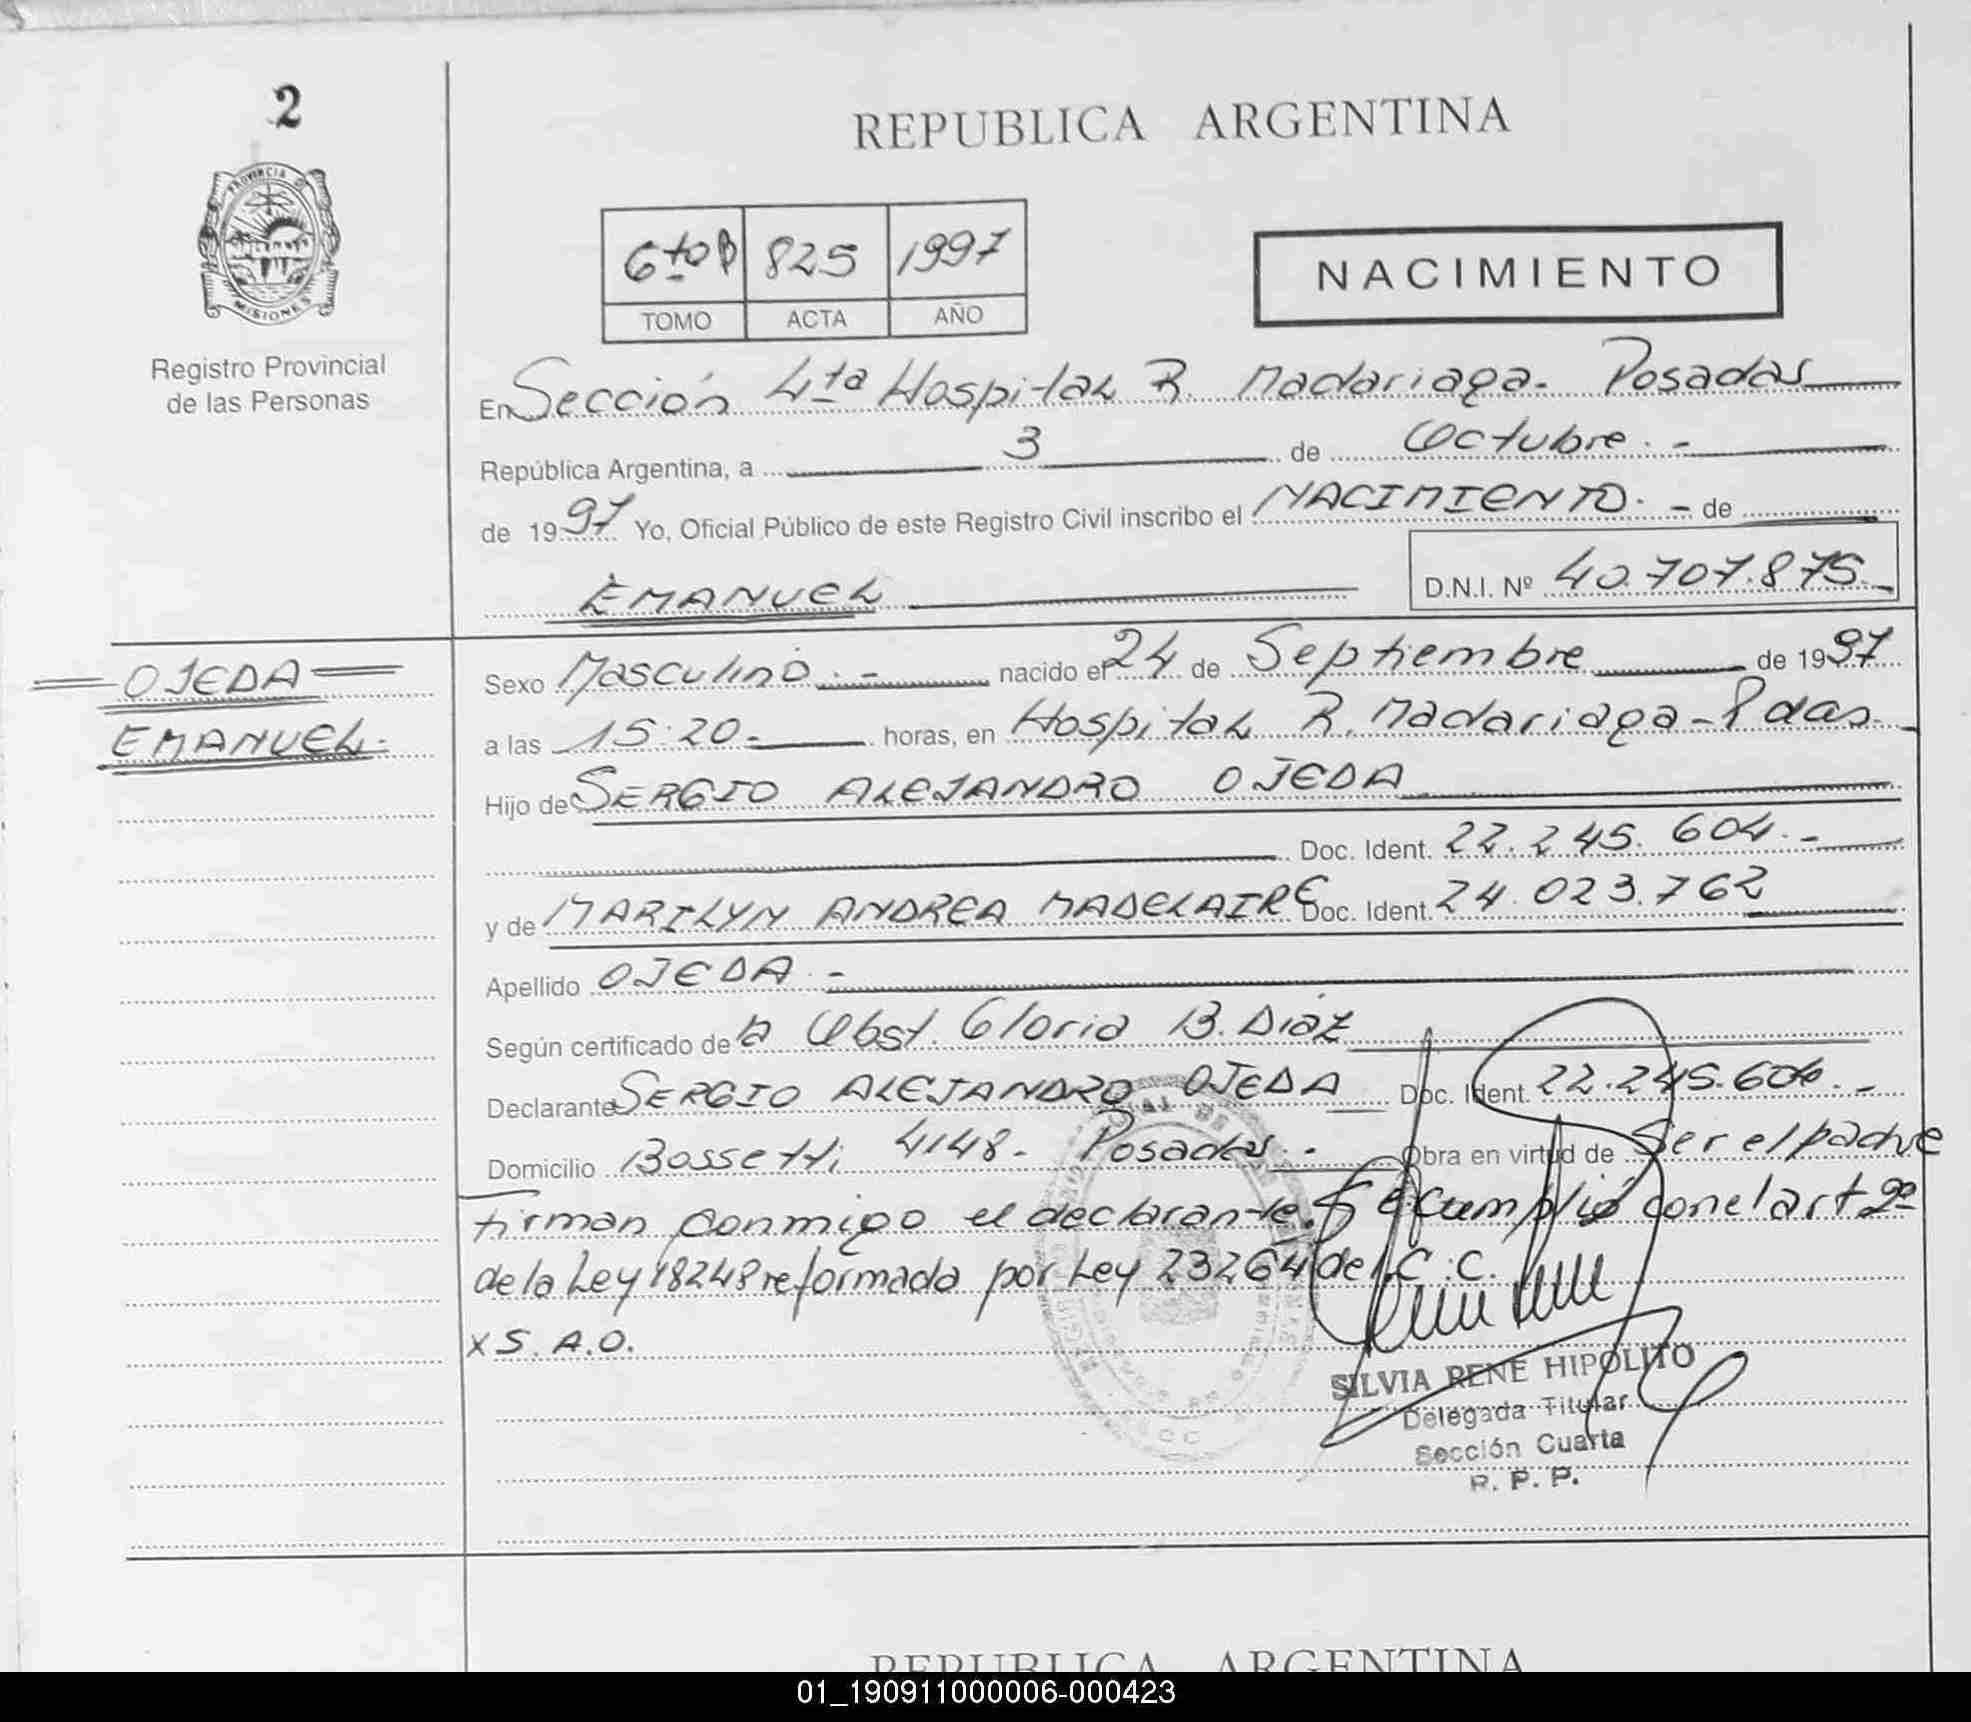 2
REPUBLICA ARGENTINA
PROVINCIA DE
MISIONES
Registro Provincial
de las Personas
6to B 825 1997
TOMO ACTA AÑO
NACIMIENTO
En Sección 4ta Hospital R. Madariaga - Posadas
República Argentina, a 3 de Octubre.-
de 1997 Yo, Oficial Público de este Registro Civil inscribo el NACIMIENTO.- de
EMANUEL D.N.I. Nº 40.707.875.-
OJEDA
EMANUEL.
Sexo Masculino.- nacido el 24 de Septiembre de 1997
a las 15:20.- horas, en Hospital R. Madariaga - Pdas.
Hijo de SERGIO ALEJANDRO OJEDA
Doc. Ident. 22.245.604.-
y de MARILYN ANDREA MADELAIRE Doc. Ident. 24.023.762
Apellido OJEDA.-
Según certificado de la Obst. Gloria B. Diaz
Declarante SERGIO ALEJANDRO OJEDA Doc. Ident. 22.245.604.-
Domicilio Bossetti 4148. Posadas. Obra en virtud de Ser el padre
firman conmigo el declarante. Se Cumplió con el art 2º
de la Ley 18248 reformada por Ley 23264 del C.C.
x S.A.O.
SILVIA RENE HIPOLITO
Delegada Titular
Sección Cuarta
R. P. P.
REPUBLICA ARGENTINA
01_190911000006-000423